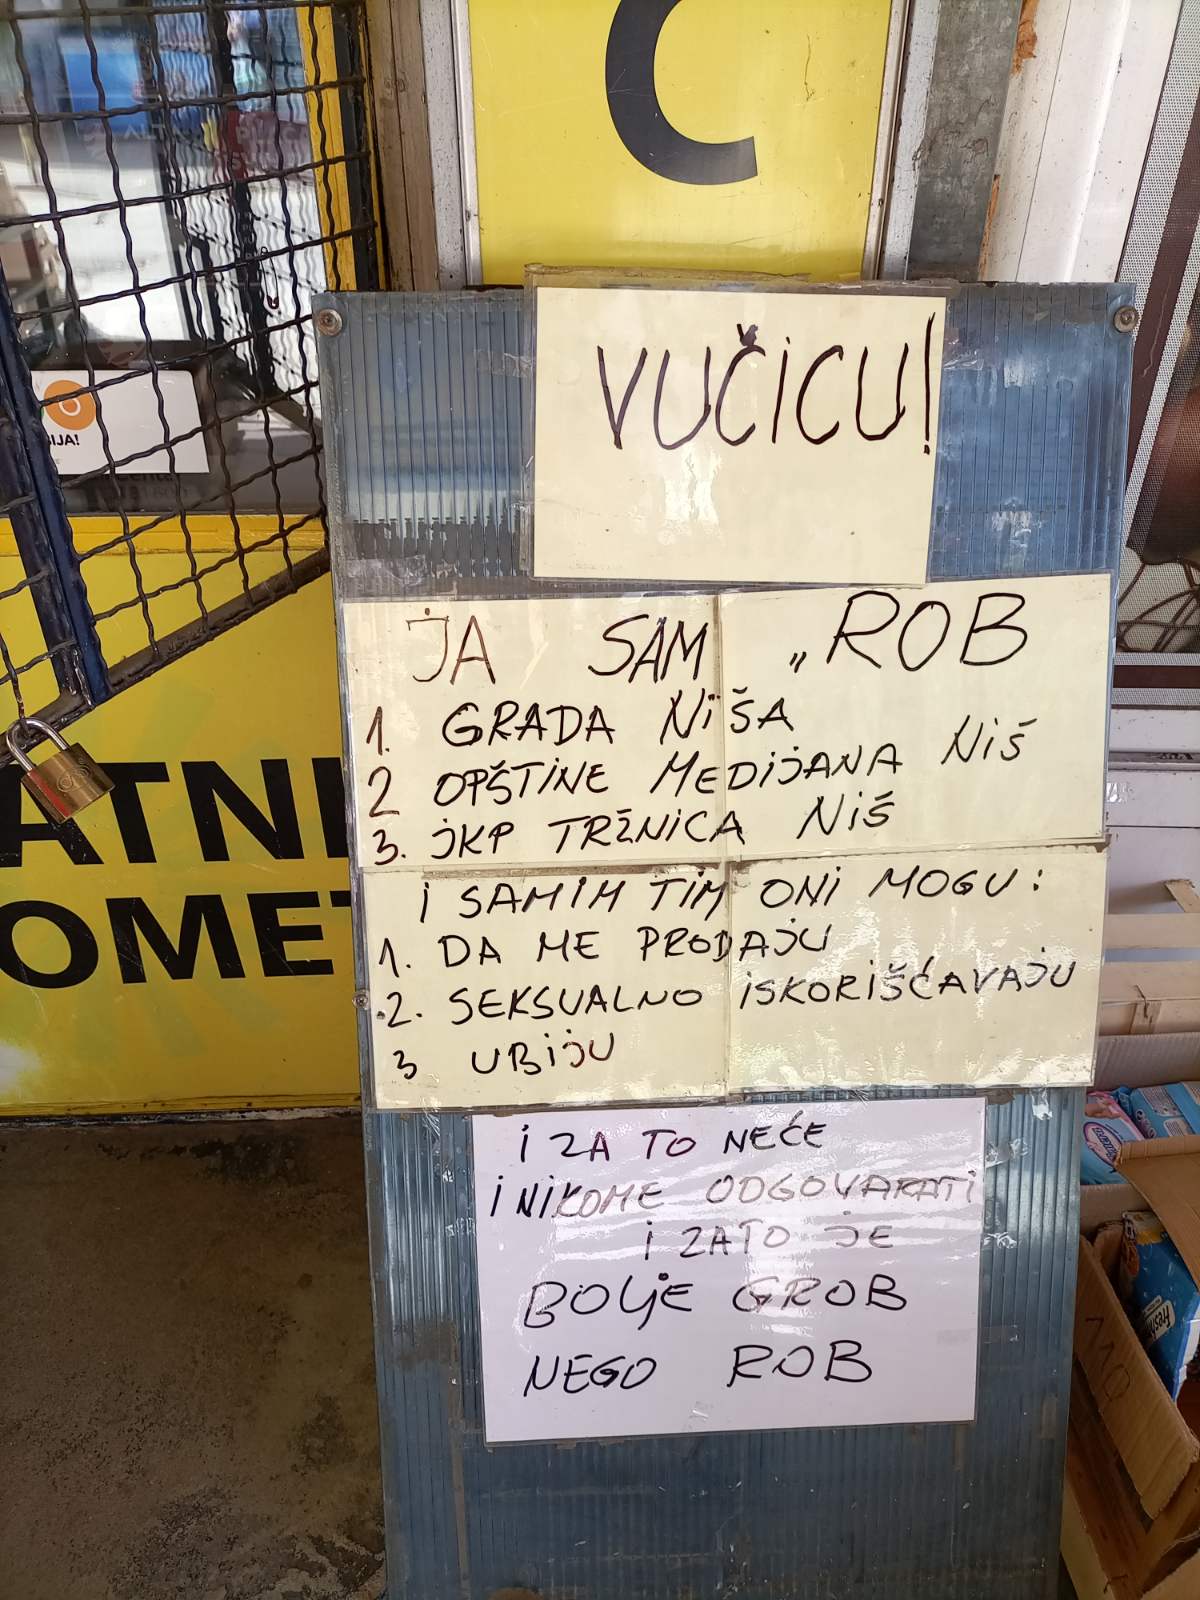 C
VUČICU!
JA SAM „ROB
1. GRADA NIŠA
2 OPŠTINE MEDIJANA NIŠ
3. JKP TRŽNICA NIŠ
I SAMIM TIM ONI MOGU:
1. DA ME PRODAJU
2. SEKSUALNO ISKORIŠĆAVAJU
3 UBIJU
I ZA TO NEĆE
I NIKOME ODGOVARATI
I ZATO JE
BOLJE GROB
NEGO ROB
ATNI
OMET